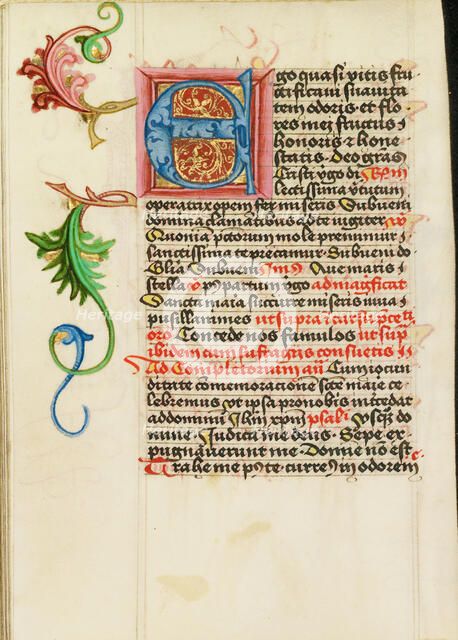 Ego quasi vitis fru
ctificavi suavita
tem odoris et flo
res mei fructus
honoris & hone
statis Deo gras
Cristi v'go di
lectissima v'tutum
operatrix opem fer miseris Subveni
domina clamantibus ad te iugiter
p'ctorum mole premimur
sanctissima te precamur Subveni do
G'lia Subveni Ave maris
stella post partum v'go ad magnificat
Sancta maria succurre miseris iuva
pusillanimes ut supra
Concede nos famulos ut sup
ibidem cum suffragiis consuetis
Ad Completorium Cum iocun
ditate co'memoracione' s'cte marie ce
lebremus ut ipsa pro nobis int'cedat
ad dominum ih'm xp'm psal' Usq'q' do
mine Iudica me deus Sepe ex
pugnaverunt me Domine no' est
Trahe me p' te curre' in odorem